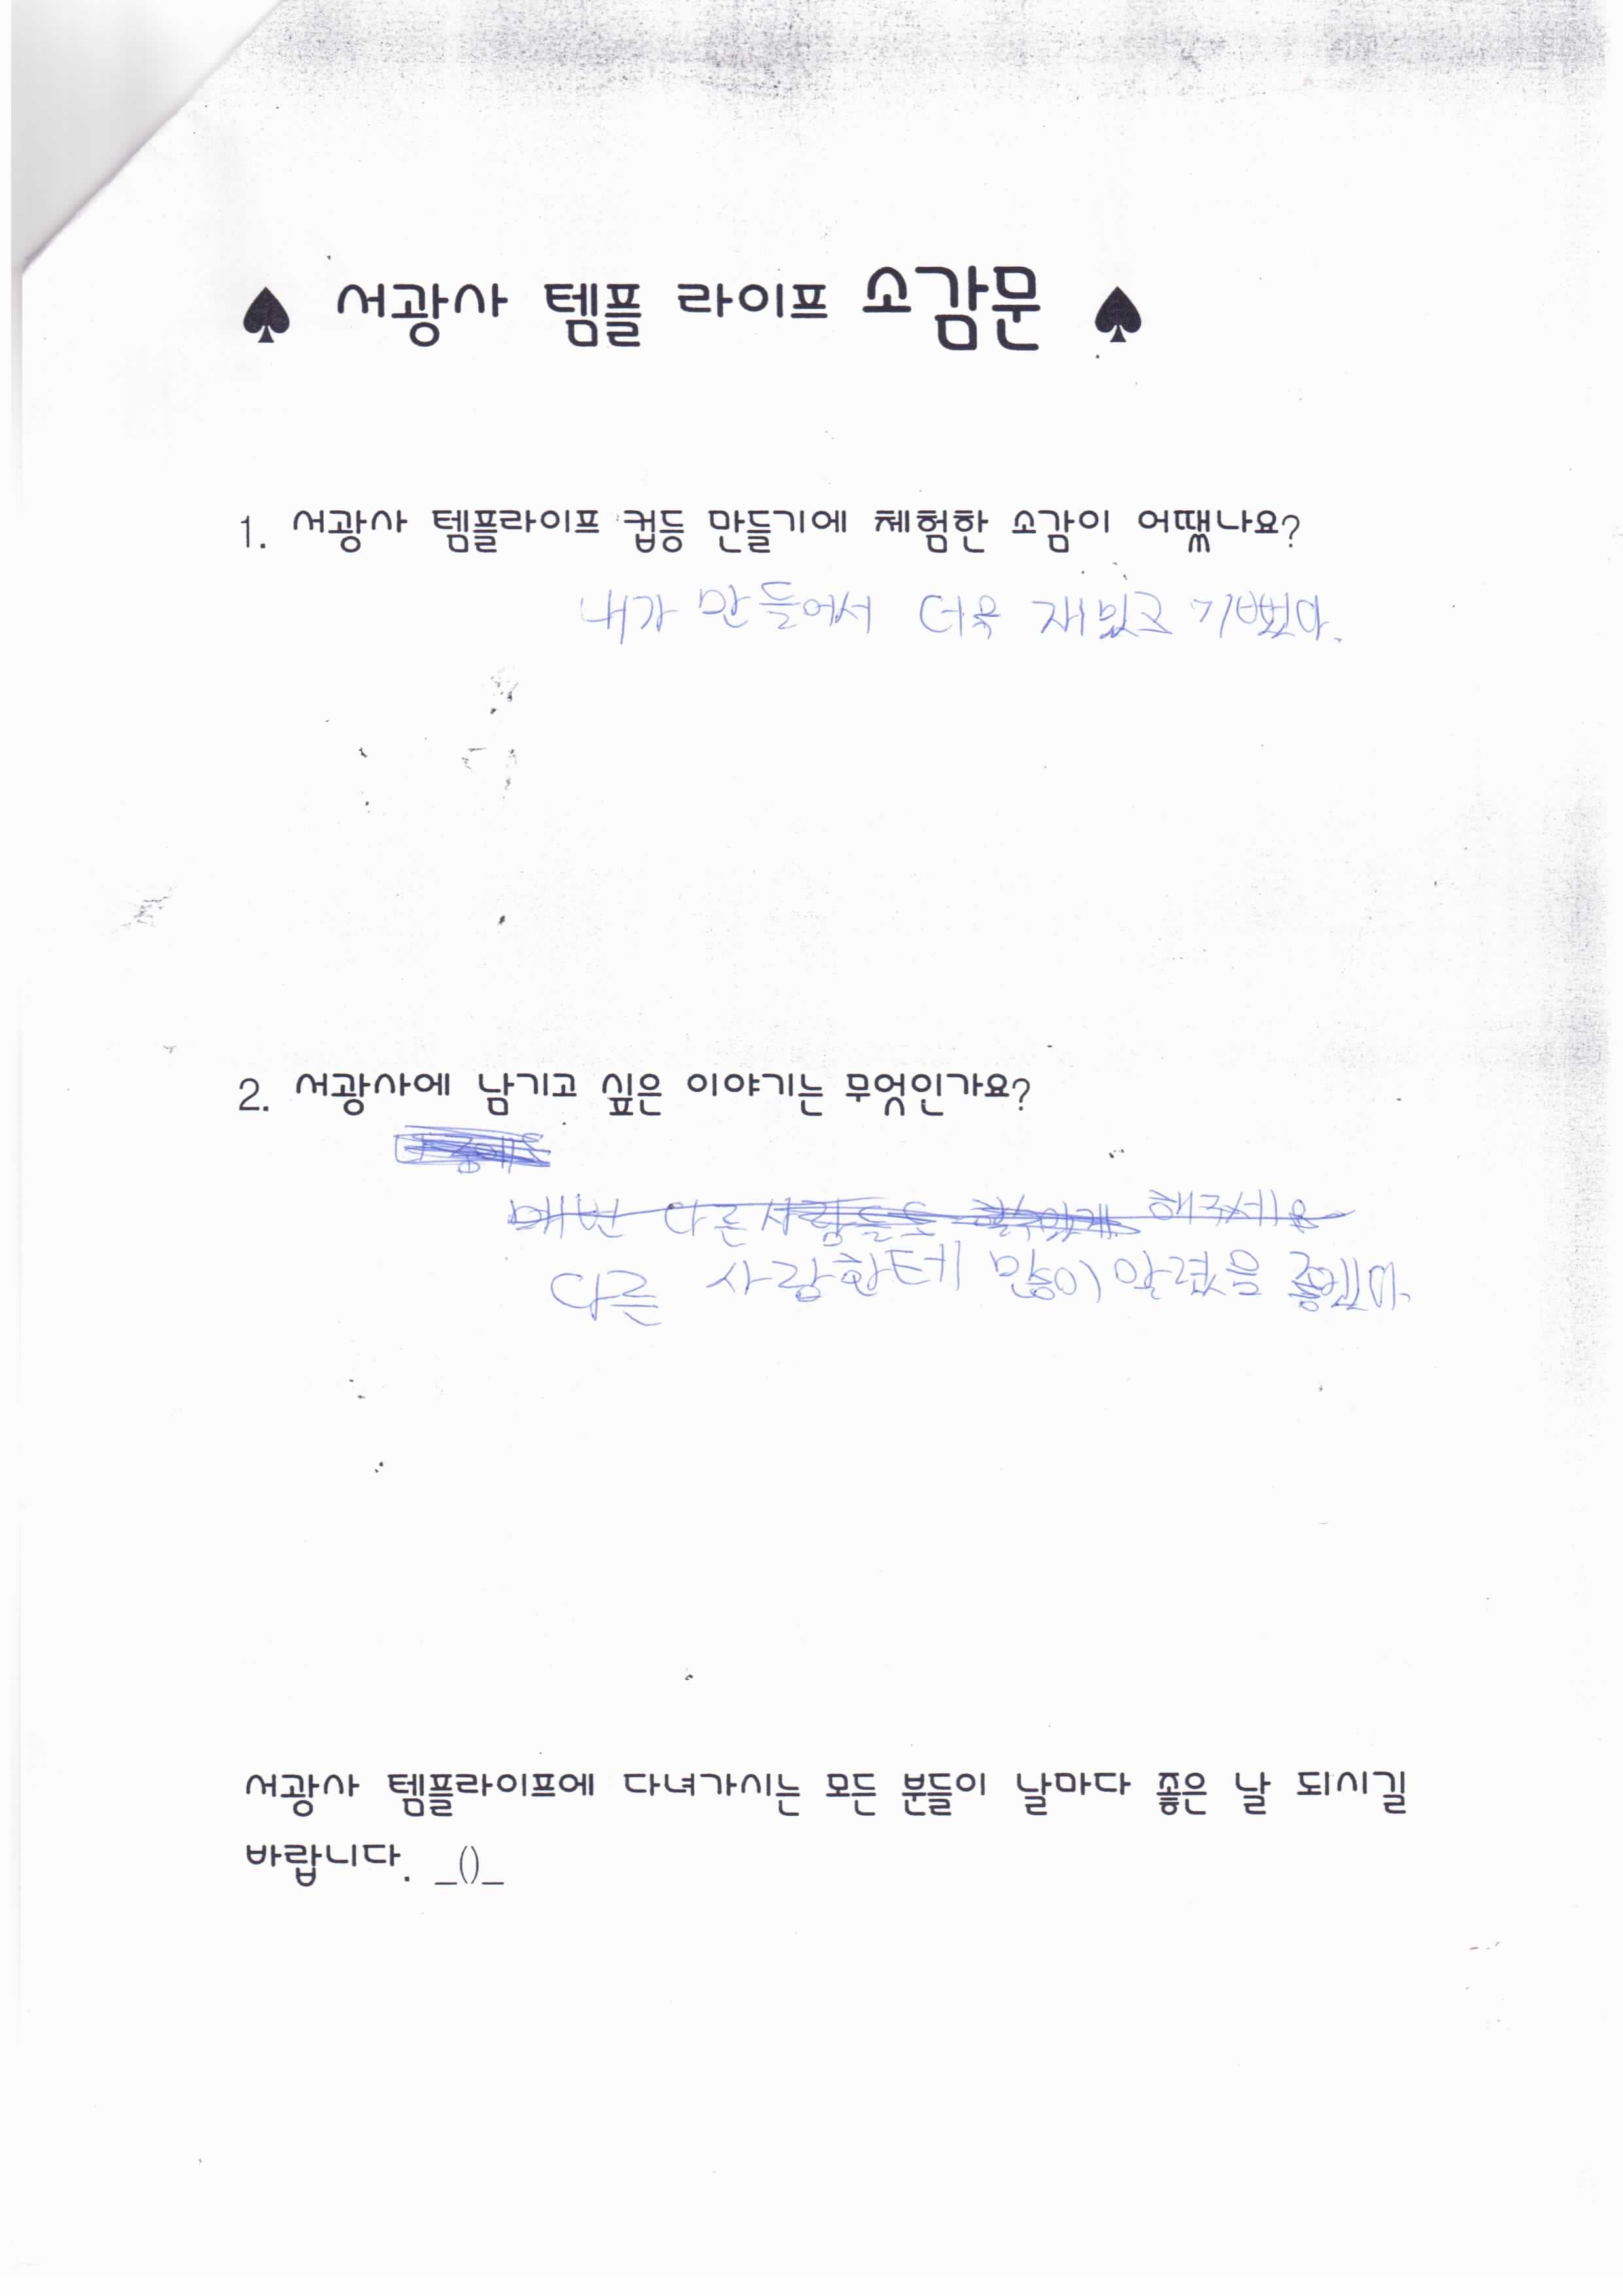 ♠ 서광사 템플 라이프 소감문 ♠
1. 서광사 템플라이프 컵등 만들기에 체험한 소감이 어땠나요?
내가 만들어서 더욱 재밌고 기뻤다.
2. 서광사에 남기고 싶은 이야기는 무엇인가요?
매번 다른사람들도 해주세요
다른 사람한테 많이 알렸을 좋겠다.
서광사 템플라이프에 다녀가시는 모든 분들이 날마다 좋은 날 되시길
바랍니다. _()_